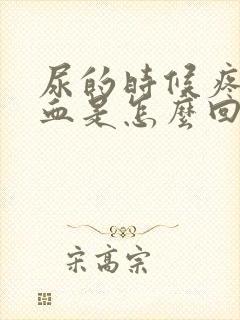 尿的時候疼
血是怎麼回
宋高宗